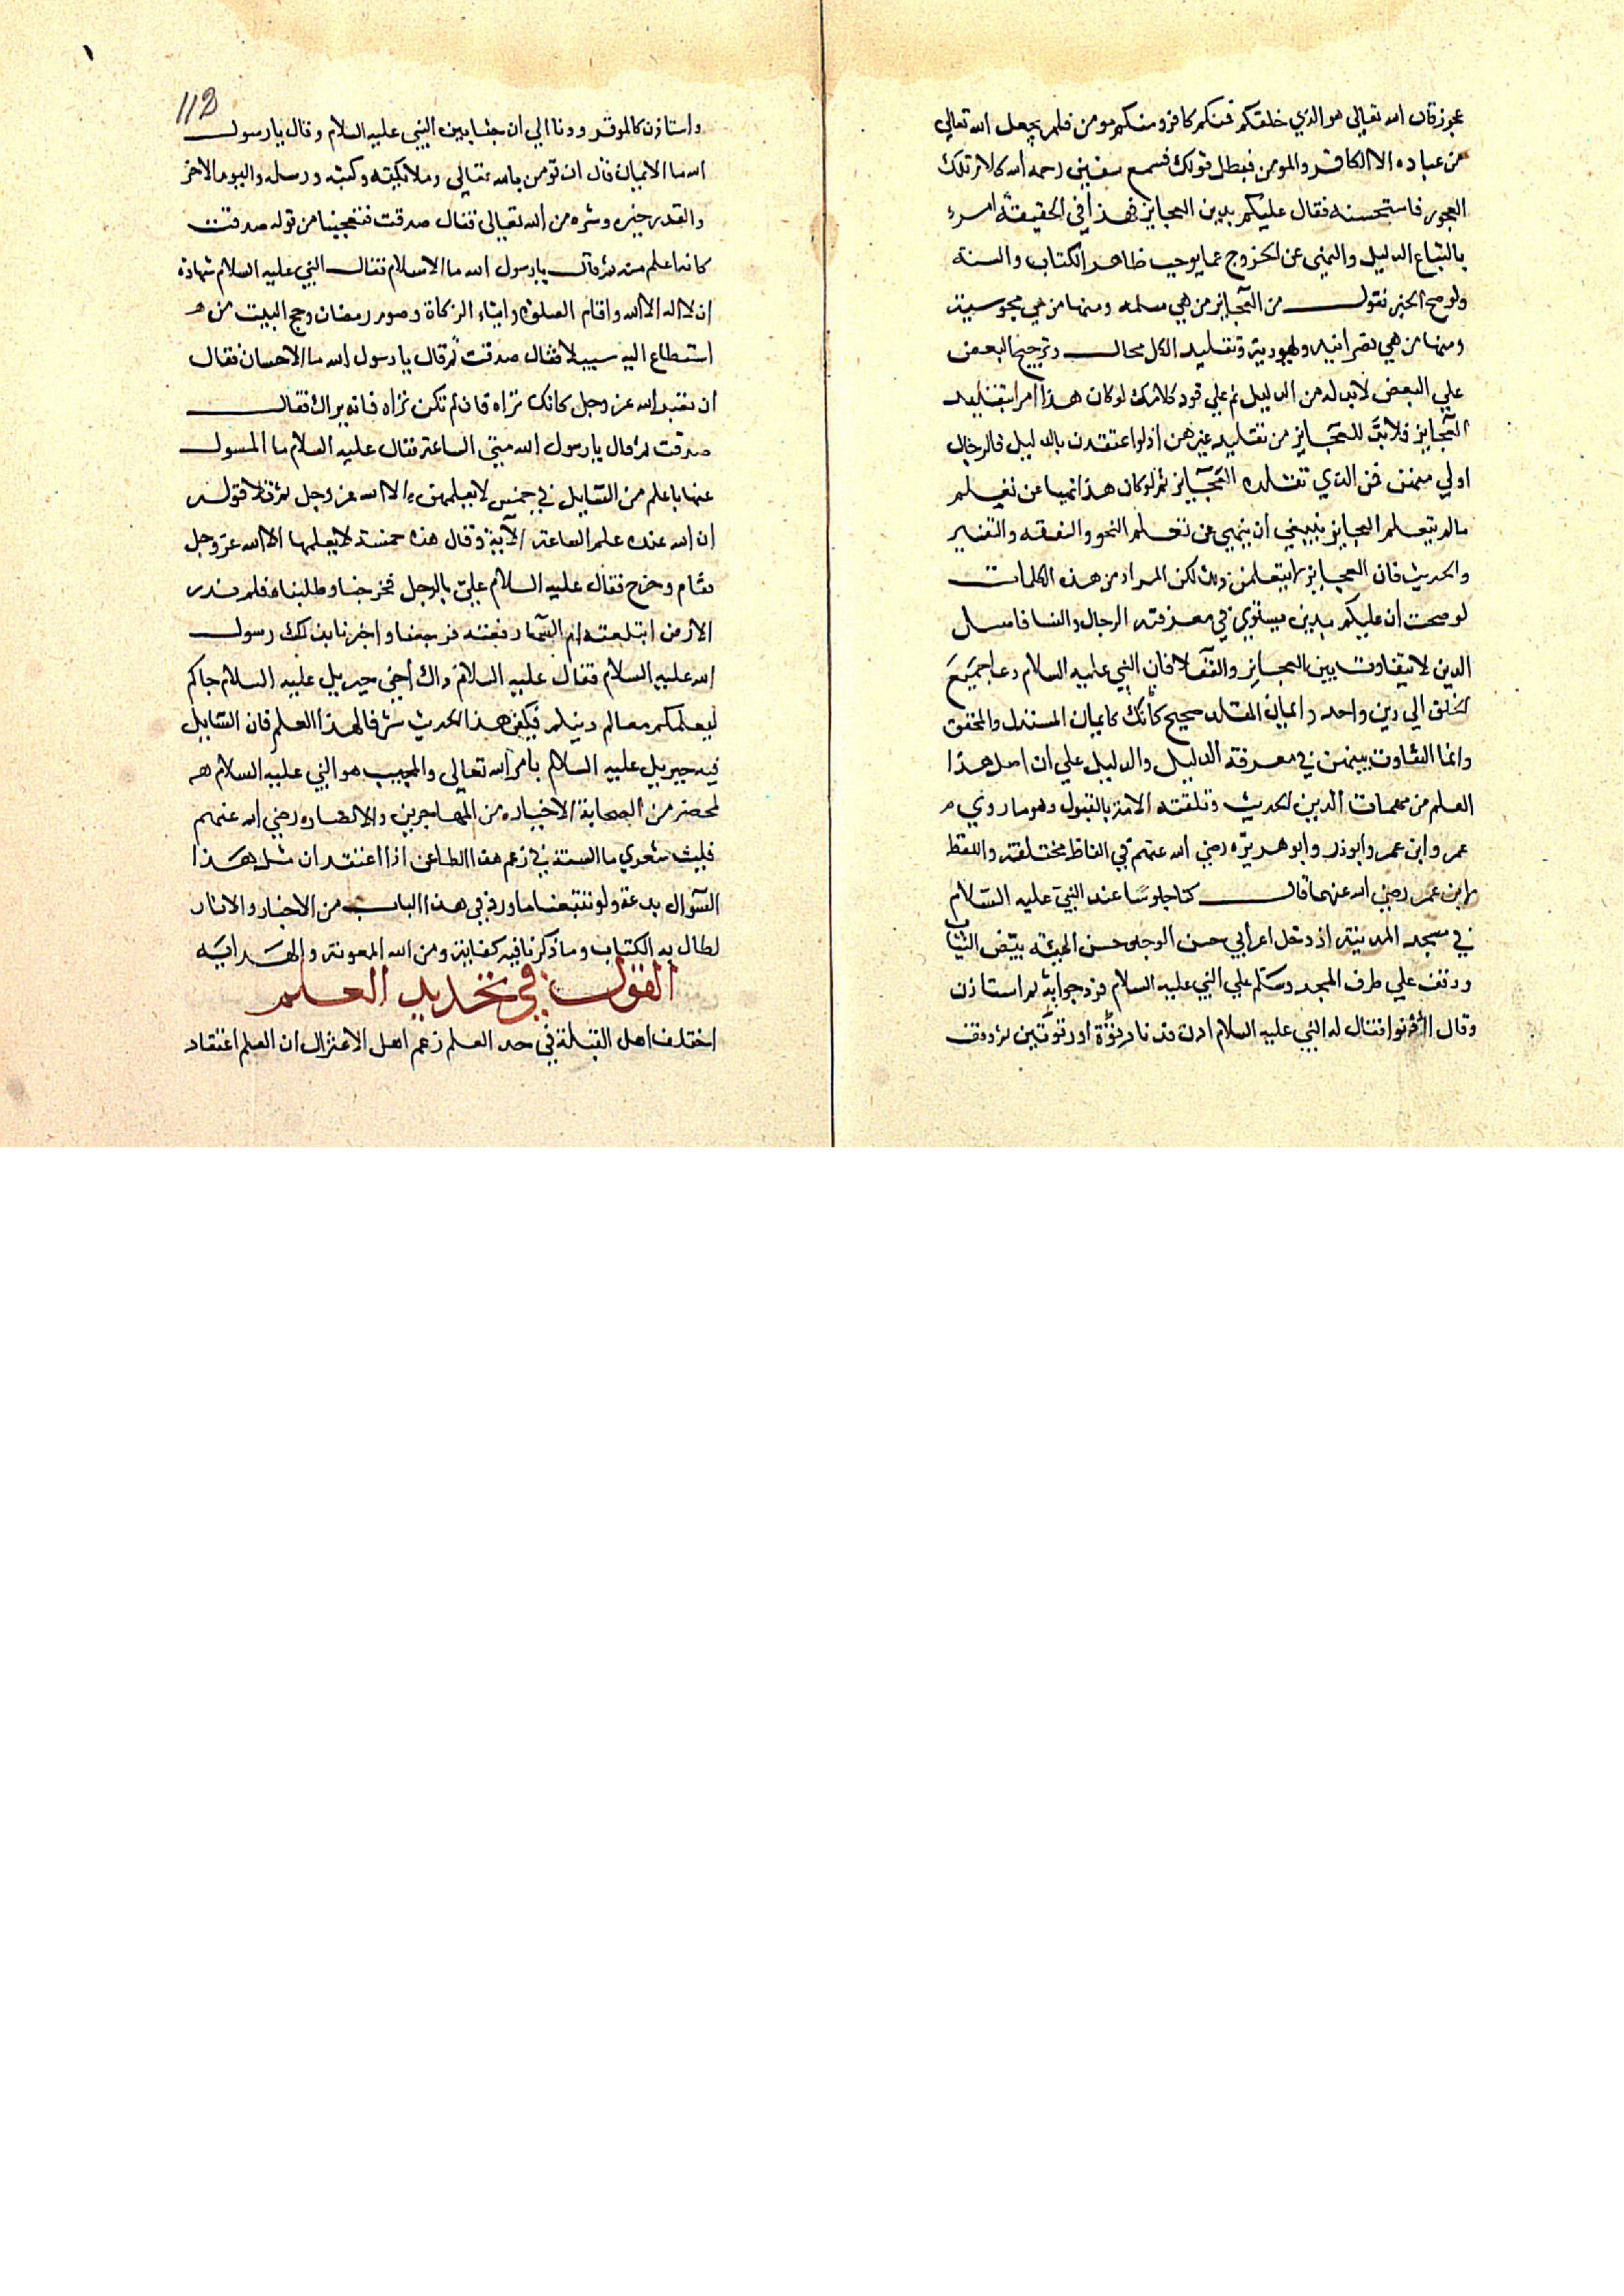 عجوز قال الله تعالى هو الذي خلقكم فمنكم كافر ومنكم مومن فلم يجعل الله تعالي
من عباده الا الكافر والمومن فبطل قولك فسمع سفين رحمه الله كلام تلك
العجوز فاستحسنه فقال عليكم بدين العجايز فهذا في الحقيقة امر
باتباع الدليل والنهي عن الخروج عما يوجب ظاهر الكتاب والسنة
ولو صح الخبر نقول من العجايز من هي مسلمه ومنها من هي مجوسية
ومنها من هي نصرانيه ويهودية وتقليد الكل محال وترجيح البعض
علي البعض لابد له من الدليل ثم علي قود كلامك لو كان هذا امر بتقليد
العجايز فلا بد للعجايز من تقليد غيرهن اذ لو اعتقدن بالدليل فالرجال
اولي منهن فمن الذي تقلده العجايز ثم لو كان هذا نهيا عن تعلم
مالم يتعلم العجايز ينبغي ان ينهي عن تعلم النحو والفقه والتفسير
والحديث فان العجايز لا يتعلمن ذلك لكن المراد من هذه الكلمات
لو صحت ان عليكم بدين يستوي في معرفته الرجال والنسا فاصل
الدين لا يتفاوت بين العجايز والعقلا فان النبي عليه السلام دعا جميع
الخلق الي دين واحد وايمان المقلد صحيح كايمان المستدل والمحقق
وانما التفاوت بينهن في معرفة الدليل والدليل علي ان اصل هذا
العلم من مهمات الدين الحديث وتلقته الامة بالقبول وهو ما روي
عمر وابن عمر وابوذر وابو هريرة رضي الله عنهم في الفاظ مختلفة واللفظ
لابن عمر رضي الله عنهما قال كنا جلوسا عند النبي عليه السلام
في مسجد المدينة اذ دخل اعرابي حسن الوجه حسن الجبة بيض الثياب
ووقف علي طرف المجد وسلم علي النبي عليه السلام فرد جوابه ثم استاذن
وقال ادنوا فقال له النبي عليه السلام ادن فدنا رتوة او رتوتين ثم وقف
112
واستاذن كالموقر ودنا الي ان جثا بين النبي عليه السلام وقال يا رسول
الله ما الايمان قال ان تومن بالله تعالي وملايكته وكتبه ورسله واليوم الاخر
والقدر خيره وشره من الله تعالى فقال صدقت فتعجبنا من قوله صدقت
كانه اعلم منه ثم قال يا رسول الله ما الاسلام فقال النبي عليه السلام شهادة
ان لا اله الا الله واقام الصلوة وايتاء الزكاة وصوم رمضان وحج البيت من
استطاع اليه سبيلا فقال صدقت ثم قال يا رسول الله ما الاحسان فقال
ان تعبد الله عز وجل كانك تراه فان لم تكن تراه فانه يراك فقال
صدقت ثم قال يا رسول الله متي الساعة فقال عليه السلام ما المسول
عنها باعلم من السايل في خمس لا يعلمهن الا الله عز وجل ثم تلا قوله
ان الله عنده علم الساعة الآية وقال هذه خمسة لا يعلمها الا الله عز وجل
فقام وخرج فقال عليه السلام علي بالرجل فخرجنا وطلبناه فلم ندر
الارض ابتلعته ام السما رفعته فرجعنا واخبرنا بذلك رسول
الله عليه السلام فقال عليه السلام ذاك أخي جبريل عليه السلام جاكم
ليعلمكم معالم دينكم فيكفي هذا الحديث شرفا لهذا العلم فان السايل
فيه جبريل عليه السلام بامر الله تعالى والمجيب هو النبي عليه السلام
بمحضر من الصحابة الاخيار من المهاجرين والانصار رضي الله عنهم
فليت شعري ما السنة في زعم هذا الطاعن اذا اعتقد ان مثل هذا
السوال بدعة ولو تتبعنا ما ورد في هذا الباب من الاخبار والاثار
لطال به الكتاب وما ذكرنا فيه كفاية ومن الله المعونة والهداية
القول في تحديد العلم
اختلف اهل القبلة في حد العلم زعم اهل الاعتزال ان العلم اعتقاد